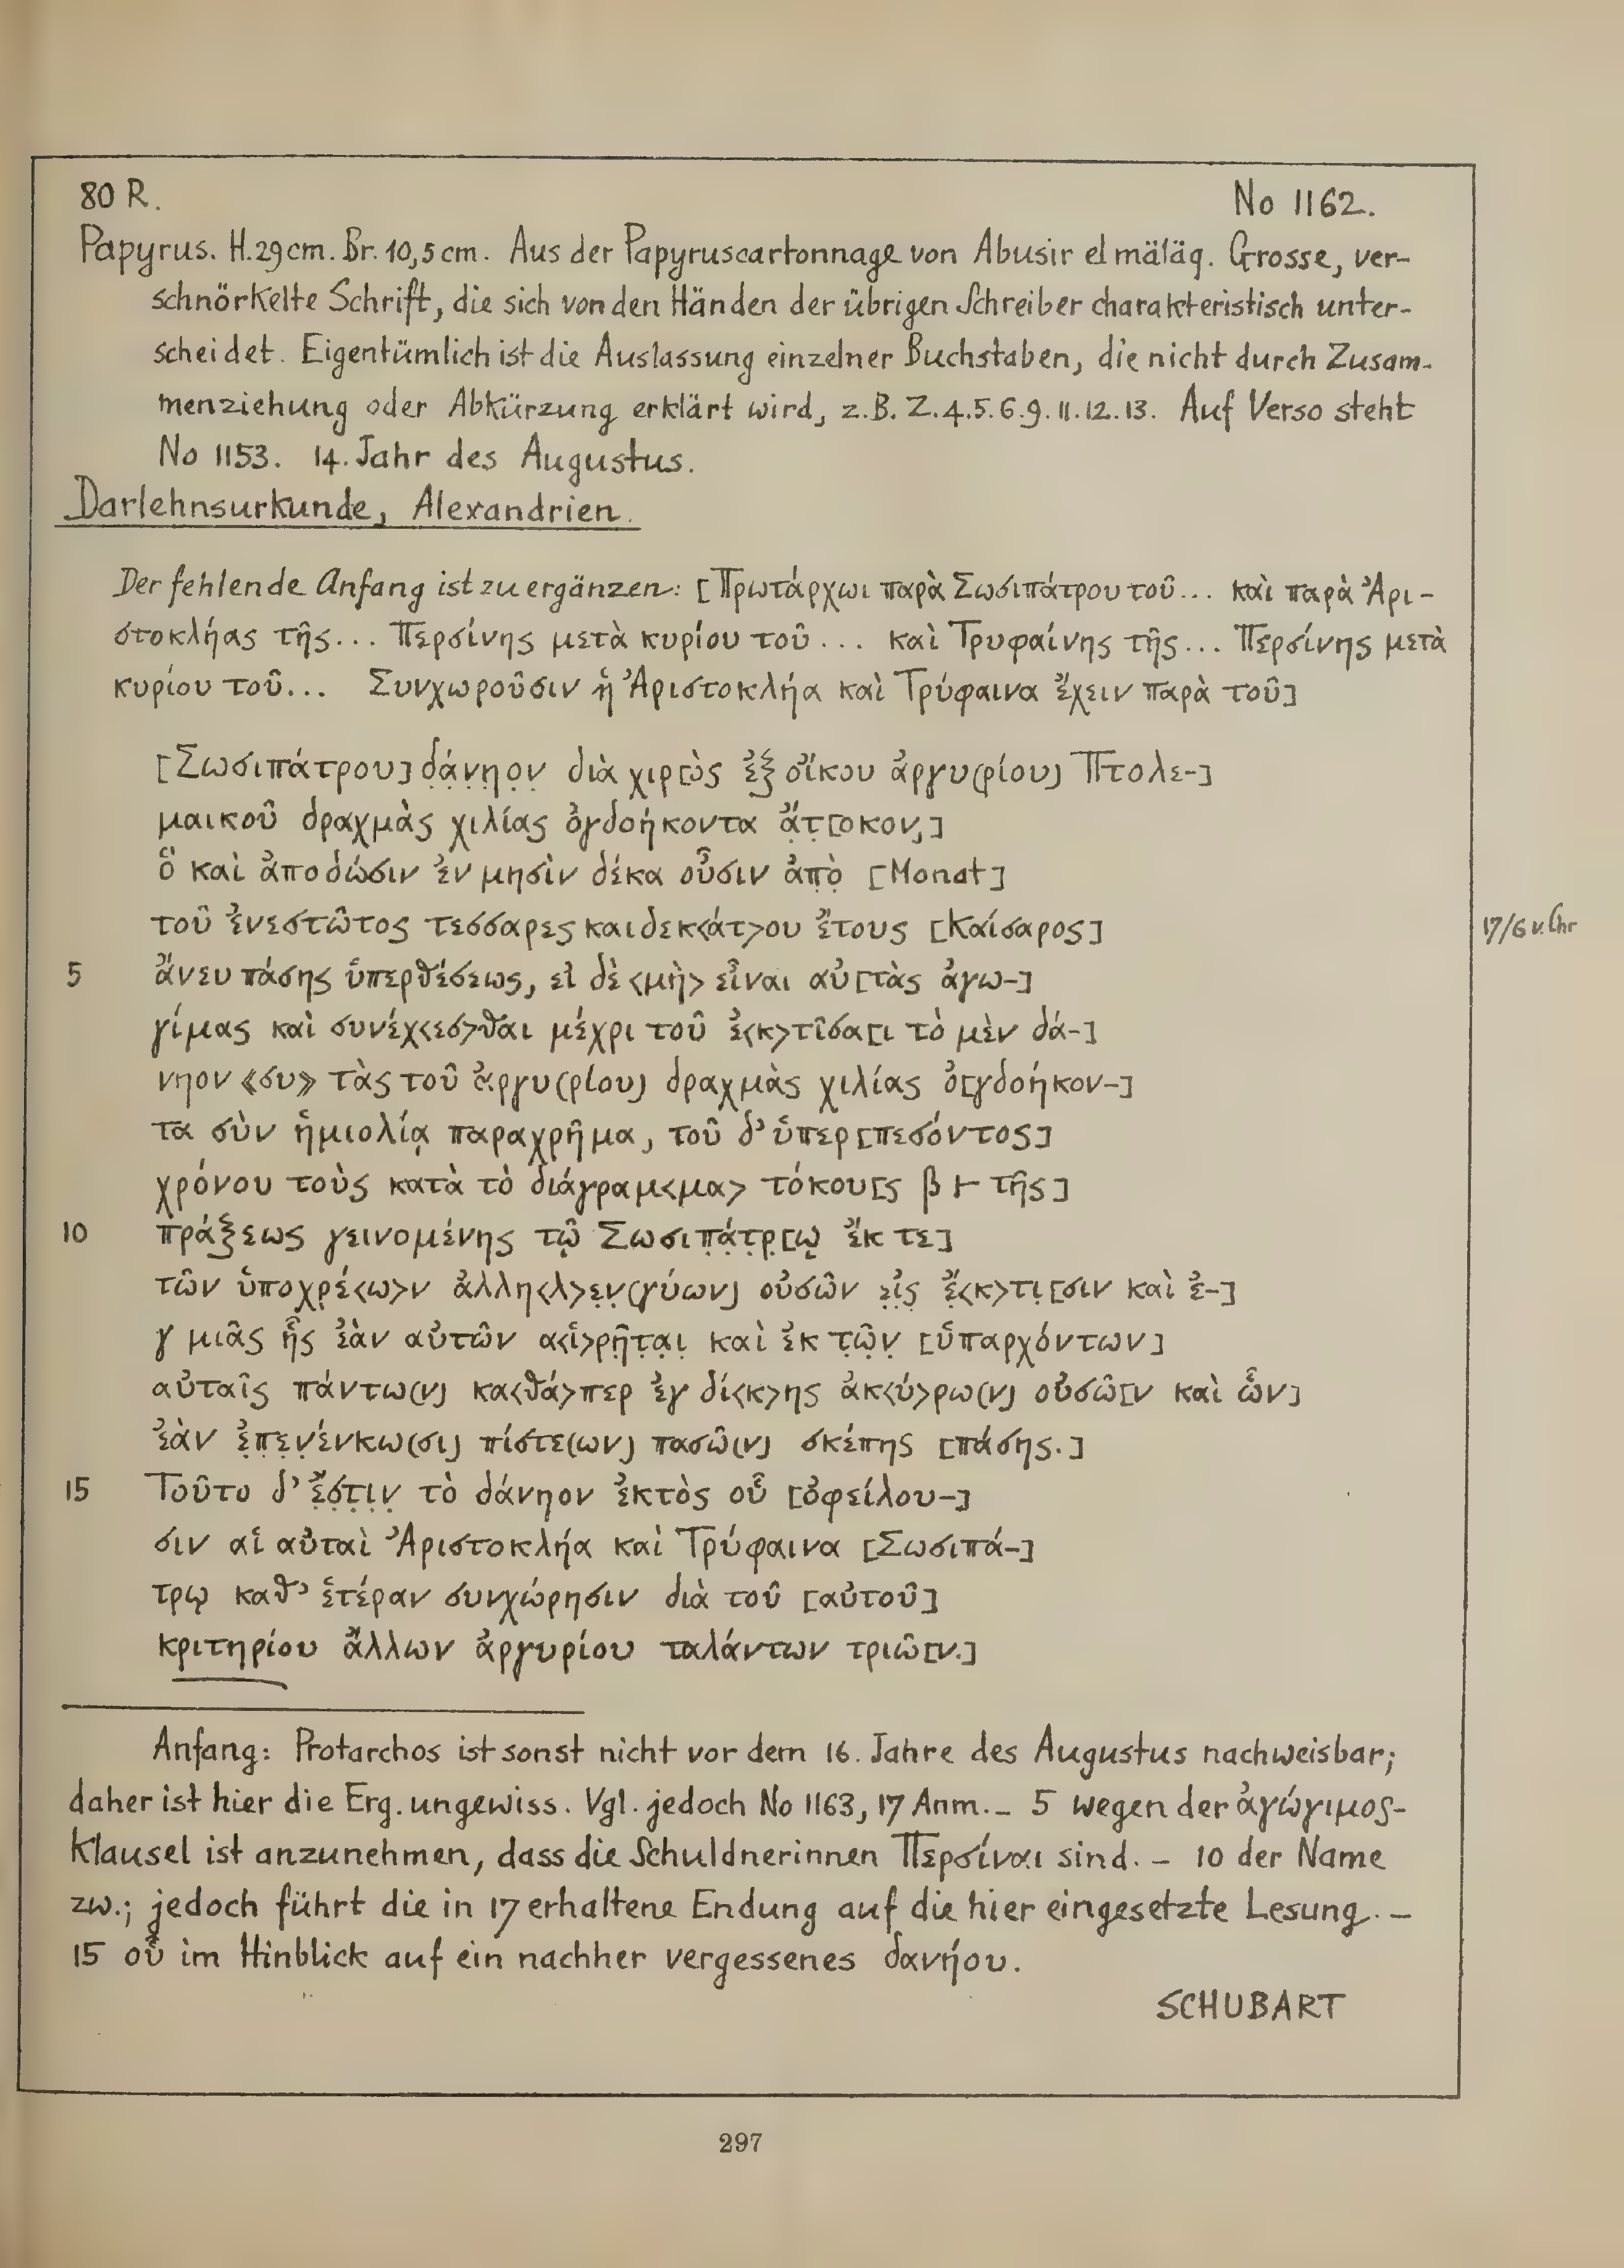 80 R.
No 1162.
Papyrus. H. 29 cm. Br. 10,5 cm. Aus der Papyruscartonnage von Abusir el mäläq. Grosse, ver-
schnörkelte Schrift, die sich von den Händen der übrigen Schreiber charakteristisch unter-
scheidet. Eigentümlich ist die Auslassung einzelner Buchstaben, die nicht durch Zusam-
menziehung oder Abkürzung erklärt wird, z. B. Z. 4. 5. 6. 9. 11. 12. 13. Auf Verso steht
No 1153. 14. Jahr des Augustus.
Darlehnsurkunde, Alexandrien.
Der fehlende Anfang ist zu ergänzen: [Πρωτάρχωι παρὰ Σωσιπάτρου τοῦ... καὶ παρὰ Ἀρι-
στοκλήας τῆς... Περσίνης μετὰ κυρίου τοῦ... καὶ Τρυφαίνης τῆς... Περσίνης μετὰ
κυρίου τοῦ... Συνχωροῦσιν ἡ Ἀριστοκλήα καὶ Τρύφαινα ἔχειν παρὰ τοῦ]
[Σωσιπάτρου] δ̣ά̣ν̣η̣ο̣ν̣ διὰ χιρ[ὸς ἐξ οἴκου ἀργυ(ρίου) Πτολε-]
μαικοῦ δραχμὰς χιλίας ὀγδοήκοντα ἄ̣τ̣[οκον,]
ὃ καὶ ἀποδώσιν ἐν μησὶν δέκα οὖσιν ἀπ̣ὸ̣ [Monat]
τοῦ ἐνεστῶτος τεσσαρες καιδεκ<άτ>ου ἔτους [Καίσαρος]
17/6 v. Chr
5 ἄνευ πάσης ὑπερθέσεως, εἰ δὲ <μὴ> εἶναι αὐ[τὰς ἀγω-]
γίμας καὶ συνέχ<εσ>θαι μέχρι τοῦ ἐ<κ>τῖσα[ι τὸ μὲν δά-]
νηον «συ» τὰς τοῦ ἀργυ(ρίου) δραχμὰς χιλίας ὀ[γδοήκον-]
τα σὺν ἡμιολίᾳ παραχρῆμα, τοῦ δ' ὑπερ[πεσόντος]
χρόνου τοὺς κατὰ τὸ διάγραμ<μα> τόκου[ς β ⊢ τῆς]
10 πράξεως γεινομένης τῷ Σωσιπ̣ά̣τ̣ρ̣[ῳ ἔκ τε]
τῶν ὑποχρέ<ω>ν ἀλλη<λ>ε̣ν̣(γύων) οὐσῶν ε̣ἰ̣ς̣ ἔ̣<κ>τι̣[σιν καὶ ἐ-]
γ μιᾶς ἧς ἐὰν αὐτῶν α<ἱ>ρῆ̣τ̣α̣ι̣ καὶ ἐκ τ̣ῶ̣ν̣ [ὑπαρχόντων]
αὐταῖς πάντω(ν) κα<θά>περ ἐγ δί<κ>ης ἀκ<ύ>ρω(ν) οὐσῶ[ν καὶ ὧν]
ἐὰν ἐ̣π̣ε̣ν̣ένκω(σι) πίστε(ων) πασῶ(ν) σκέπης [πάσης.]
15 Τοῦτο δ' ἔ̣σ̣τ̣ι̣ν̣ τὸ δάνηον ἐκτὸς οὗ [ὀφείλου-]
σιν αἱ αὐταὶ Ἀριστοκλήα καὶ Τρύφαινα [Σωσιπά-]
τρῳ καθ' ἑτέραν συνχώρησιν διὰ τοῦ [αὐτοῦ]
κριτηρίου ἄλλων ἀργυρίου ταλάντων τριῶ[ν.]
Anfang: Protarchos ist sonst nicht vor dem 16. Jahre des Augustus nachweisbar;
daher ist hier die Erg. ungewiss. Vgl. jedoch No 1163, 17 Anm. – 5 wegen der ἀγώγιμος-
Klausel ist anzunehmen, dass die Schuldnerinnen Περσίναι sind. – 10 der Name
zw.; jedoch führt die in 17 erhaltene Endung auf die hier eingesetzte Lesung. –
15 οὗ im Hinblick auf ein nachher vergessenes δανήου.
SCHUBART
297